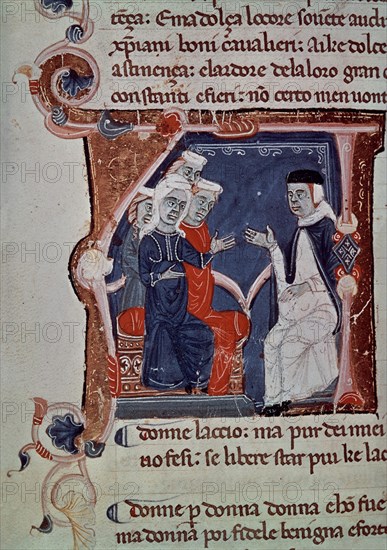 tẽça: E ma dolça locore souẽte audi
xp̃iani boni caualieri: Ai ke dolce
astinença: elardore dela loro gran
constanti efieri: nõ certo men uont
donne laccio: ma pur dei miei
rio fesi: se libere star piu ke lac
Donne p̱ donna donna ebõ fue
madonna poi fidele benigna eforte